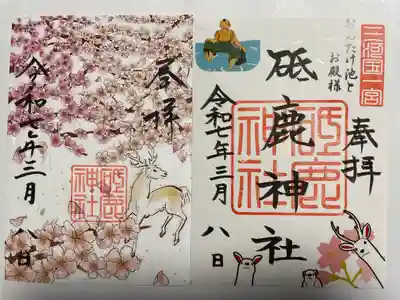 三河国一宮
なんたけ池と
お殿様
奉拝
砥鹿神社
砥鹿
神社
令和七年三月八日
奉拝
砥鹿
神社
令和七年三月八日